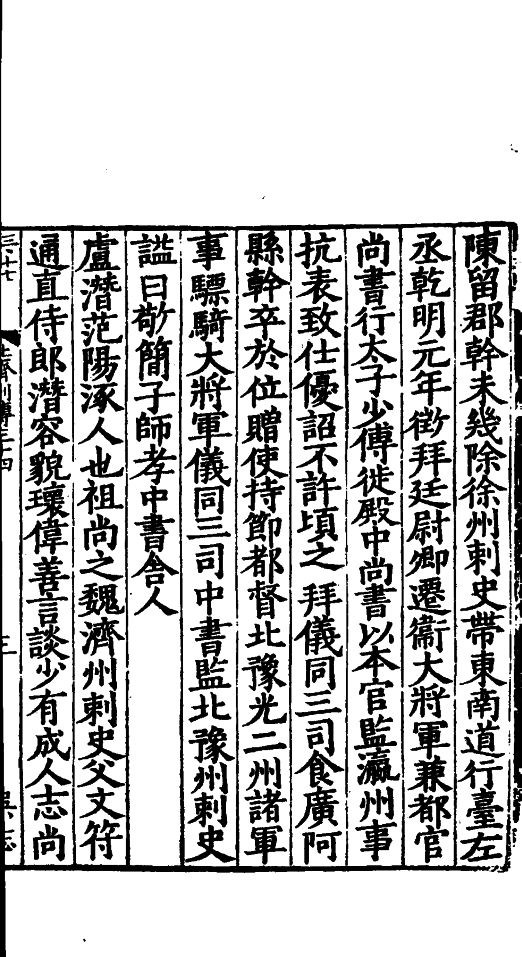 陳留郡幹未幾除徐州刺史帶東南道行臺左
丞乾明元年徵拜廷尉卿遷衞大將軍兼都官
尚書行太子少傅徙殿中尚書以本官監瀛州事
抗表致仕優詔不許頃之拜儀同三司食廣阿
縣幹卒於位贈使持節都督北豫光二州諸軍
事驃騎大將軍儀同三司中書監北豫州刺史
謚曰敬簡子師孝中書舍人
盧潛范陽涿人也祖尚之魏濟州刺史父文符
通直侍郎潛容貌瓌偉善言談少有成人志尚